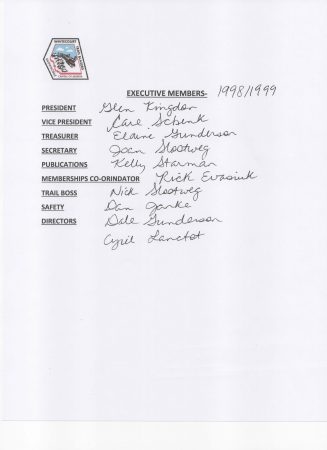 WHITECOURT
EXECUTIVE MEMBERS- 1998/1999
PRESIDENT Glen Kingdon
VICE PRESIDENT Carl Schenk
TREASURER Elaine Gunderson
SECRETARY Joan Slootweg
PUBLICATIONS Kelly Starman
MEMBERSHIPS CO-ORINDATOR Rick Evasiuk
TRAIL BOSS Nick Slootweg
SAFETY Dan Janke
DIRECTORS Dale Gunderson
Cyril Lanctot